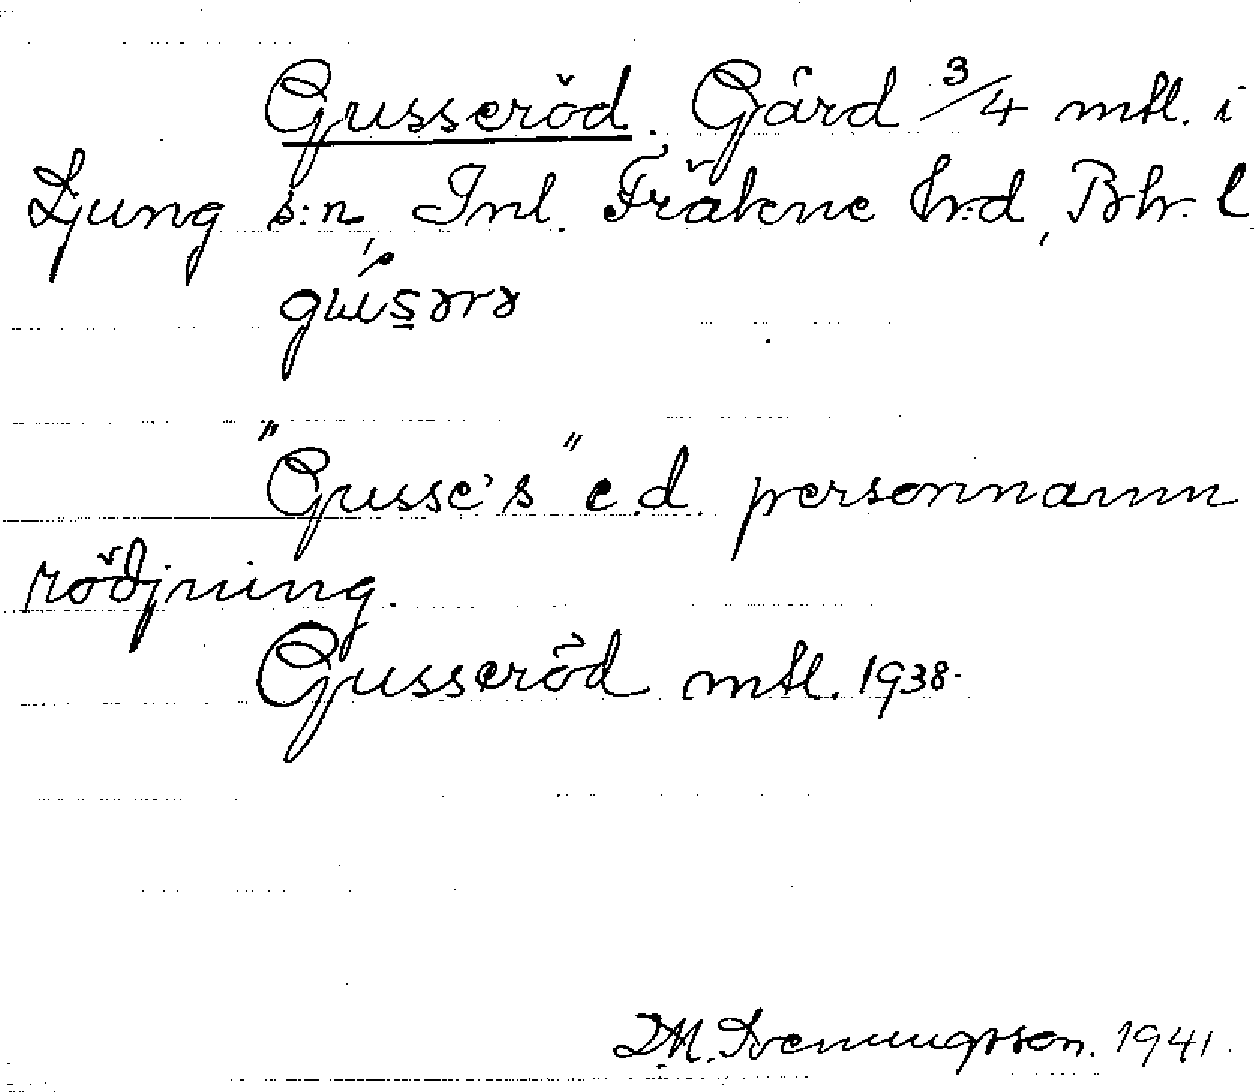 Gusseröd. Gård 3/4 mtl. i
Ljung s:n, Inl. Fräkne hrd, Bhr. l
"Gusse's" e.d. personnamn
rödjning.
Gusseröd mtl. 1938.
D.M. Svenningsson. 1941.